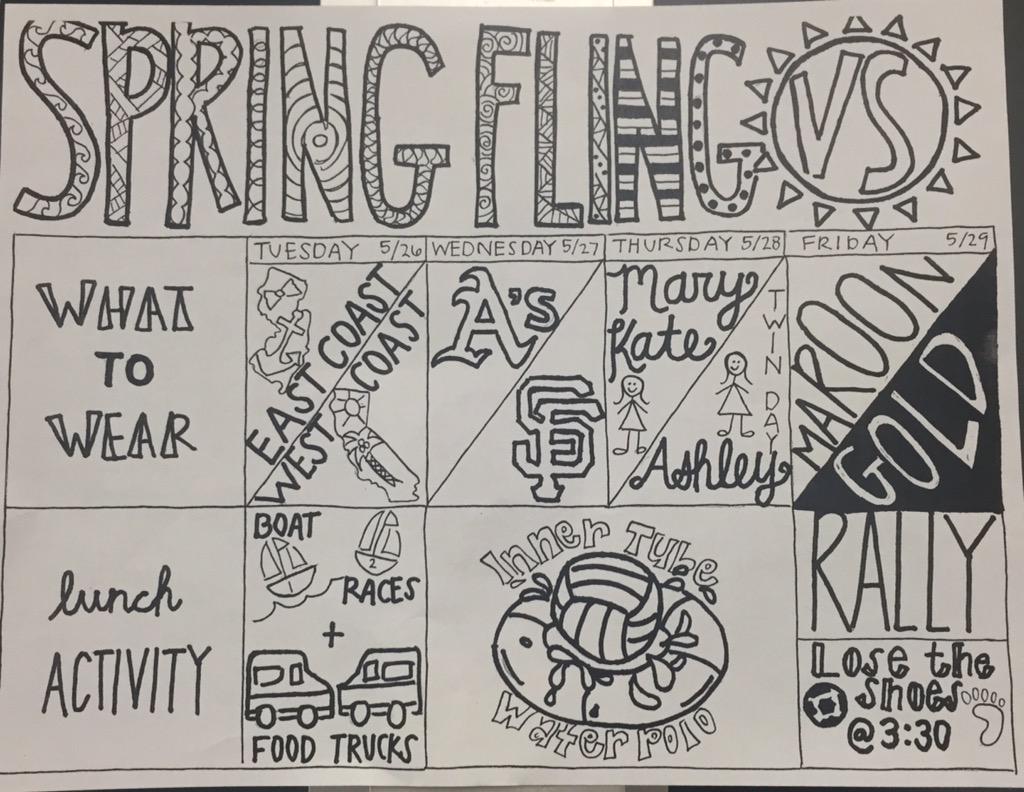 SPRING FLING VS
TUESDAY 5/26
WEDNESDAY 5/27
THURSDAY 5/28
FRIDAY 5/29
WHAT
TO
WEAR
EAST COAST
WEST COAST
A's
SF
Mary
Kate
TWIN DAY
Ashley
MAROON
GOLD
lunch
ACTIVITY
BOAT
2
RACES
+
FOOD TRUCKS
Inner Tube
Water Polo
RALLY
Lose the
shoes
@ 3:30